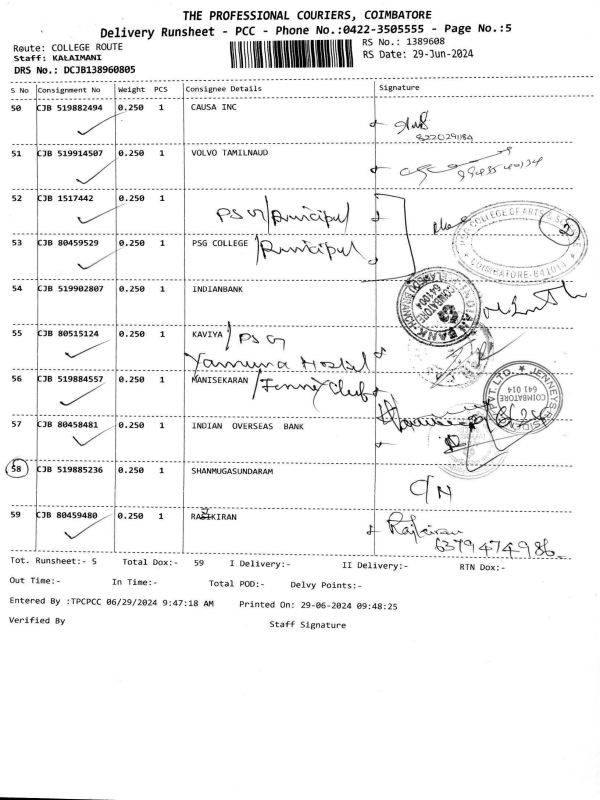 THE PROFESSIONAL COURIERS, COIMBATORE
Delivery Runsheet - PCC - Phone No.:0422-3505555 - Page No.:5
Route: COLLEGE ROUTE
RS No.: 1389608
Staff: KALAIMANI
RS Date: 29-Jun-2024
DRS No.: DCJB138960805
S No Consignment No Weight PCS Consignee Details Signature
50 CJB 519882494 0.250 1 CAUSA INC
8220291184
51 CJB 519914507 0.250 1 VOLVO TAMILNAUD
52 CJB 1517442 0.250 1
PSG/Principal
PSG COLLEGE OF ARTS & SCIENCE
COIMBATORE-641014
2
53 CJB 80459529 0.250 1 PSG COLLEGE /Principal
54 CJB 519902807 0.250 1 INDIANBANK
INDIAN BANK
COIMBATORE
641004
55 CJB 80515124 0.250 1 KAVIYA / PSG
Yamuna Hostel
56 CJB 519884557 0.250 1 MANISEKARAN /Jenney Club
COIMBATORE
641 014
PVT. LTD.
57 CJB 80458481 0.250 1 INDIAN OVERSEAS BANK
58 CJB 519885236 0.250 1 SHANMUGASUNDARAM
C/N
59 CJB 80459480 0.250 1 RAJIKIRAN
Rajkiran
6379474986
Tot. Runsheet:- 5 Total Dox:- 59 I Delivery:- II Delivery:- RTN Dox:-
Out Time:- In Time:- Total POD:- Delvy Points:-
Entered By :TPCPCC 06/29/2024 9:47:18 AM Printed On: 29-06-2024 09:48:25
Verified By Staff Signature